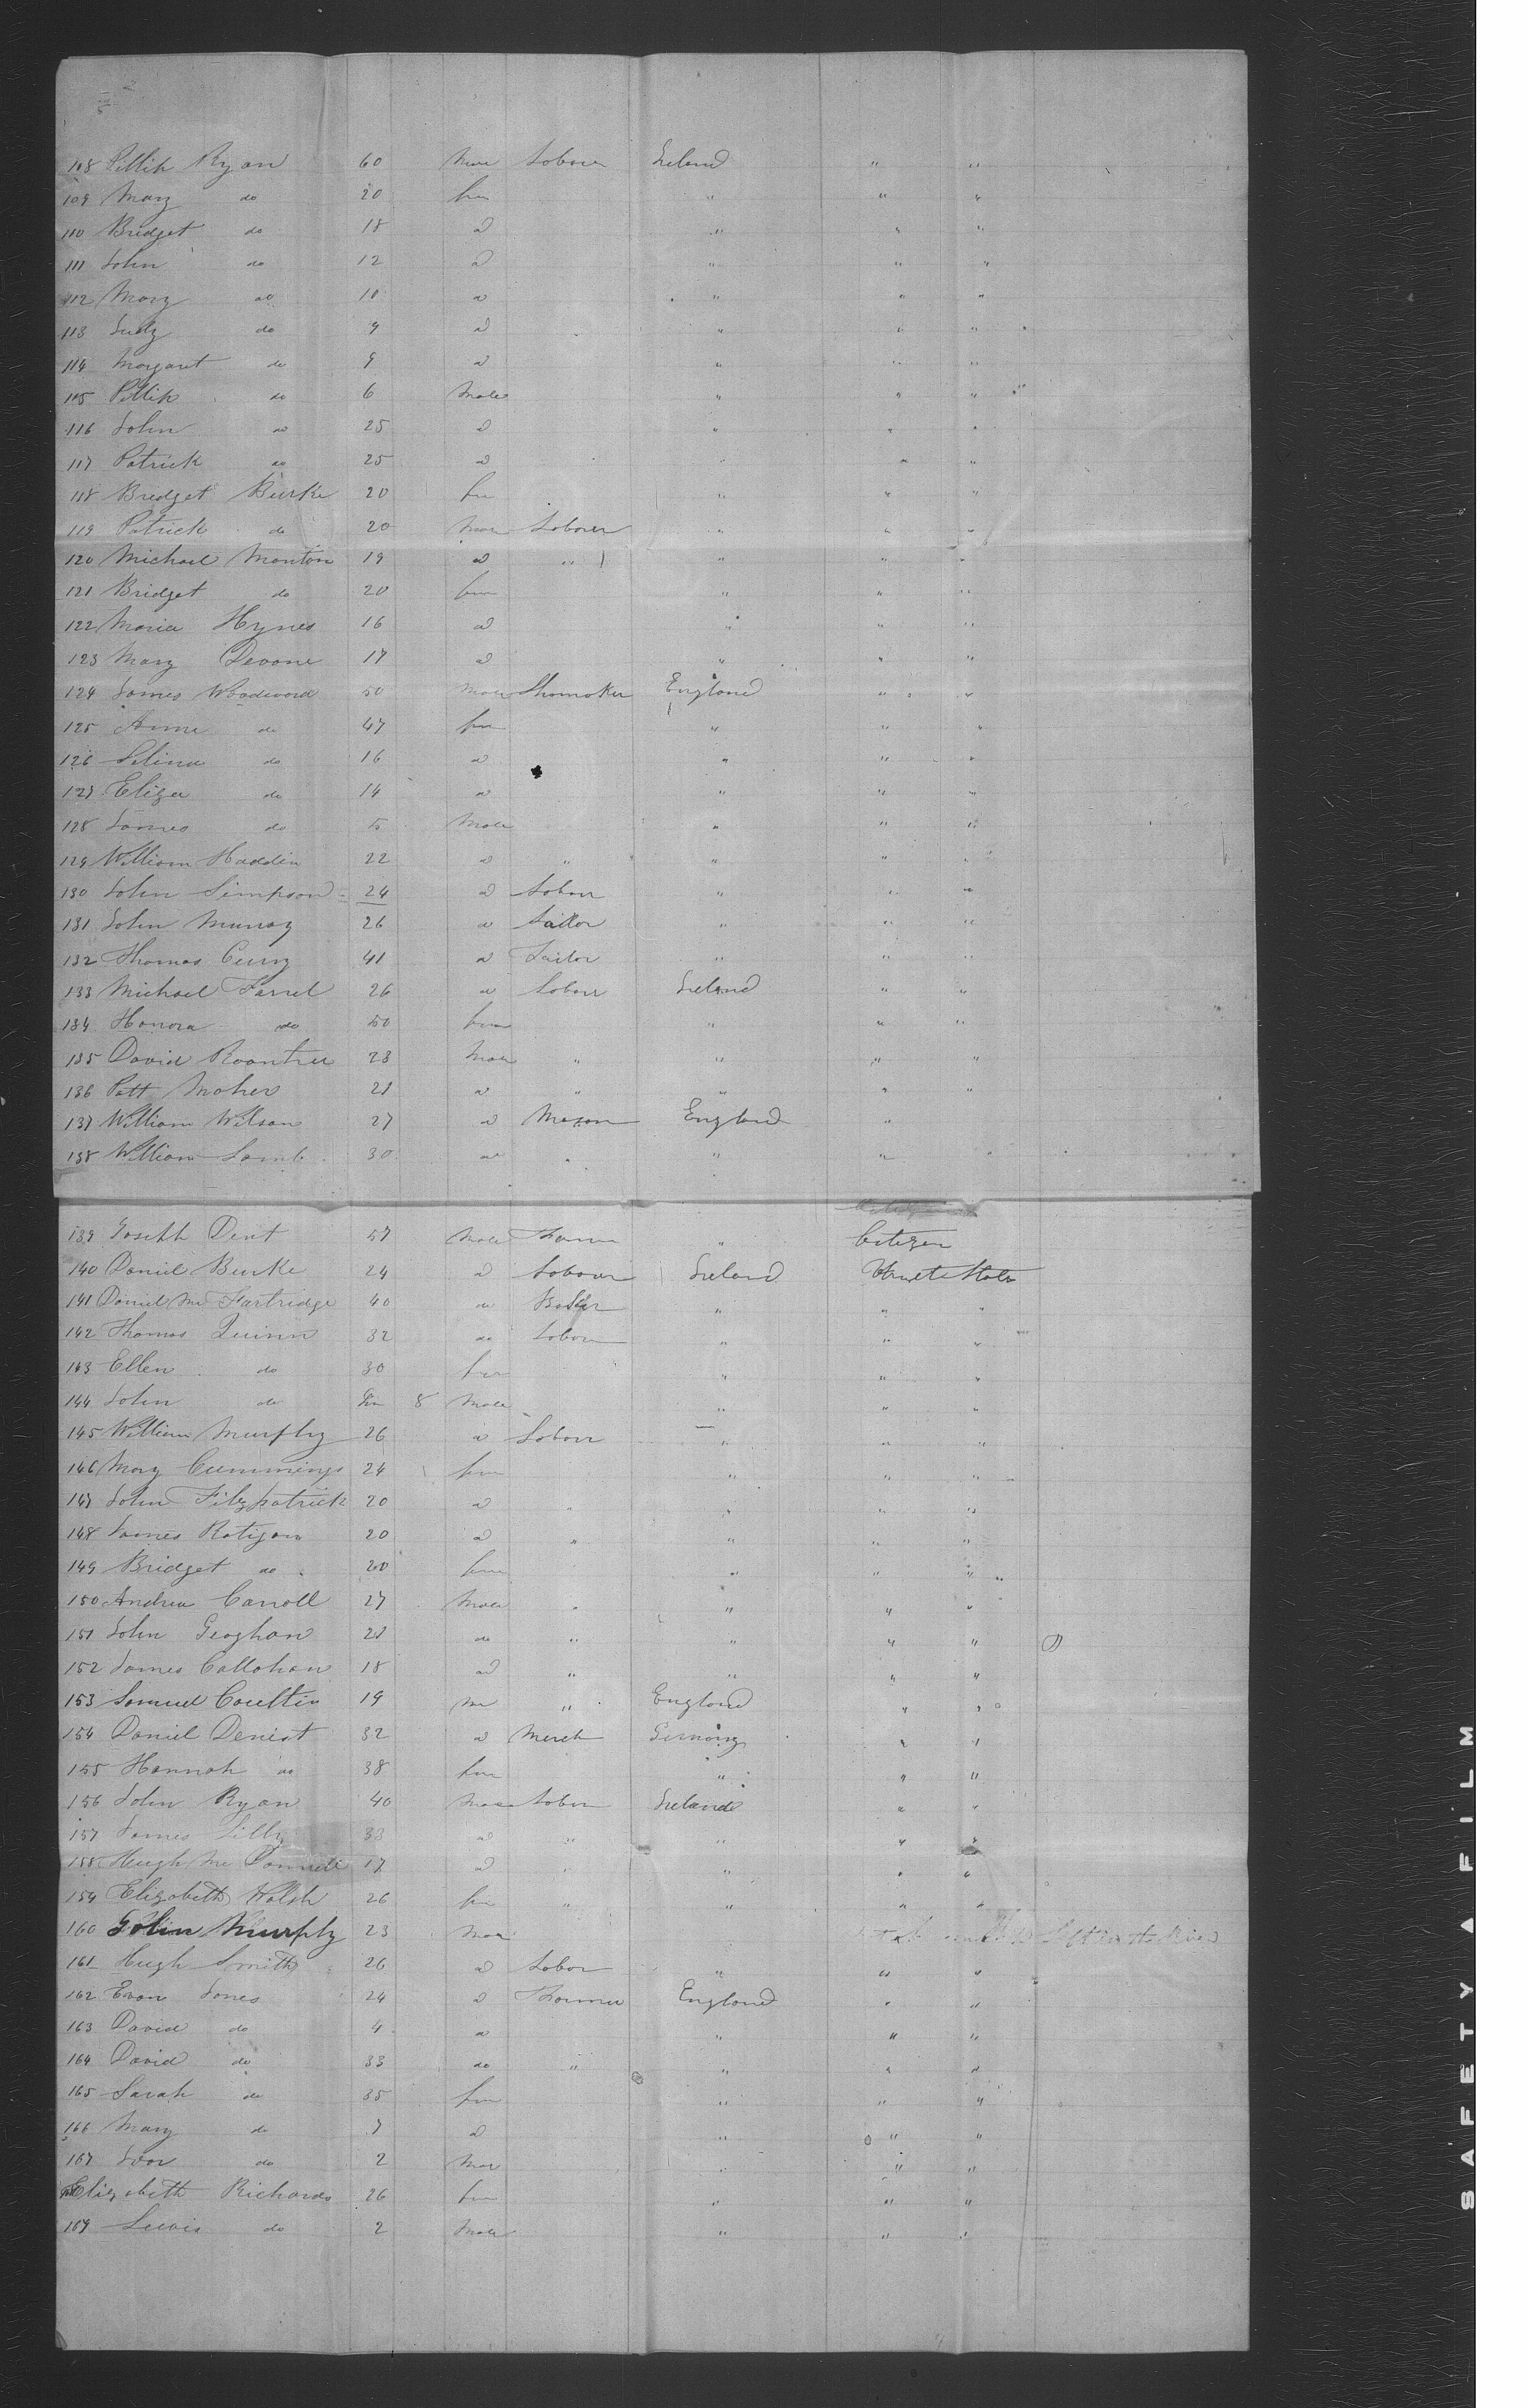 108 Pillip Ryan 60 Male Labour Ireland " "
109 Mary do 20 fem " " "
110 Bridget do 18 d " " "
111 John do 12 d " " "
112 Mary do 10 d " " "
113 Judy do 9 d " " "
114 Margaret do 9 d " " "
115 Pillip do 6 Male " " "
116 John do 25 d " " "
117 Patrick do 25 d " " "
118 Bridget Burke 20 fem " " "
119 Patrick do 20 Male Labour " " "
120 Michael Manton 19 d " " " "
121 Bridget do 20 fem " " "
122 Maria Hynes 16 d " " "
123 Mary Devone 17 d " " "
124 James Woodword 50 Male Shomaker England " "
125 Anne do 47 fem " " "
126 Selina do 16 d " " "
127 Eliza do 14 d " " "
128 James do 5 Male " " "
129 William Haddin 22 d " " " "
130 John Simpson 24 d Labour " " "
131 John Murray 26 d Sailor " " "
132 Thomas Curry 41 d Tailor " " "
133 Michael Farrel 26 d Labour Ireland " "
134 Honora do 50 fem " " "
135 David Roantree 28 Male " " " "
136 Patt Maher 21 d " " " "
137 William Wilson 27 d Mason England "
138 William Lamb 30 d " " " "
139 Joseph Dent 57 Male Farmer " Citizen
140 Daniel Burke 24 d Labour Ireland United States
141 Daniel Mc 40 do Baker " " "
142 Thomas Quinn 32 do Labour " " "
143 Ellen do 30 fem " " "
144 John do 8 Male " " "
145 William Murphy 26 d Labour " " "
146 Mary Cummings 24 fem " " "
147 John Fitzpatrick 20 d " " " "
148 James Ratigan 20 d " " " "
149 Bridget do 20 fem " " "
150 Andrew Carroll 27 Male " " " "
151 John Geoghan 21 do " " " "
152 James Callahan 18 d " " " "
153 Samuel Coultin 19 m " England " "
154 Daniel Denist 32 d Merch Germany " "
155 Hannah do 38 fem " " "
156 John Ryan 40 Male Labour Ireland " "
157 James Lilly 33 d " " " "
158 Hugh Mc Donnell 17 d " " " "
159 Elizabeth Walsh 26 fem " " " "
160 John Murphy 23 Male
161 Hugh Smith 26 d Labor " " "
162 Evan Jones 24 d Farmer England " "
163 David do 4 d " " "
164 David do 33 do " " " "
165 Sarah do 35 fem " " "
166 Mary do 7 d " " "
167 do 2 Male " " "
Elizabeth Richards 26 fem " " "
169 Lewis do 2 Male " " "
SAFETY A FILM